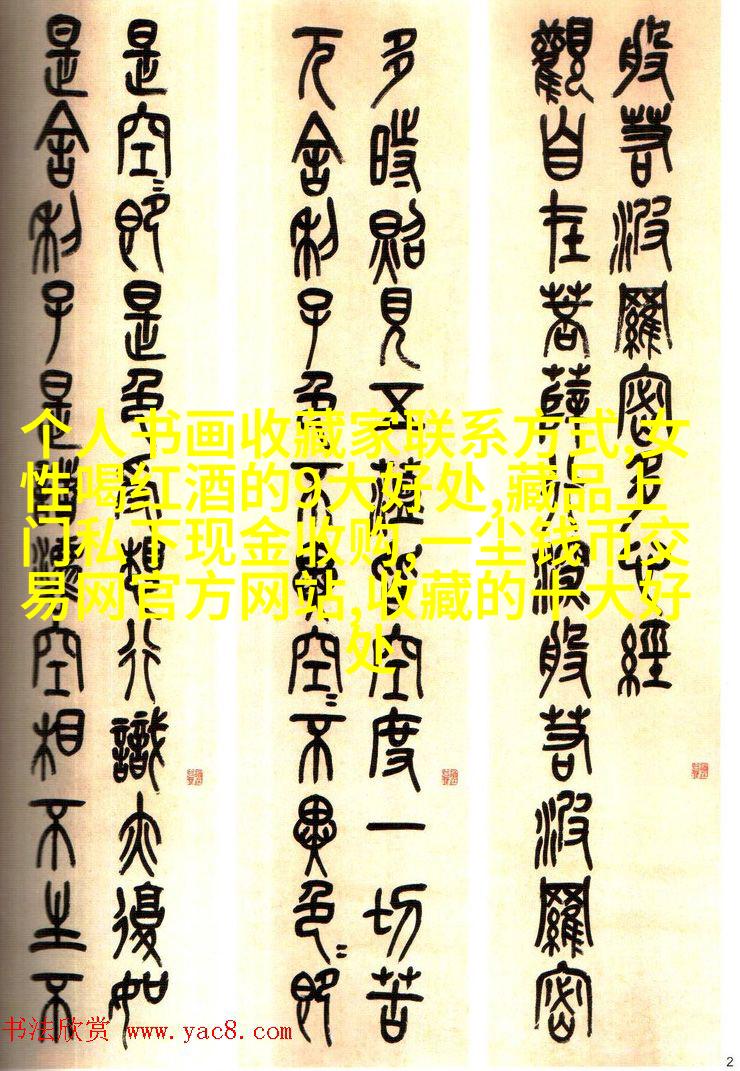 般若波羅密多心經
觀自在菩薩行深般若波羅密
多時照見五蘊皆空度一切苦
厄舍利子色不異空〻不異色〻即
是空〻即是色受想行識亦復如
是舍利子是諸法空相不生不
个人书画收藏家联系方式,女
性喝红酒的9大好处,藏品上
门私下现金收购,一尘钱币交
易网官方网站,收藏的十大好
处
书法欣赏 www.yac8.com
2